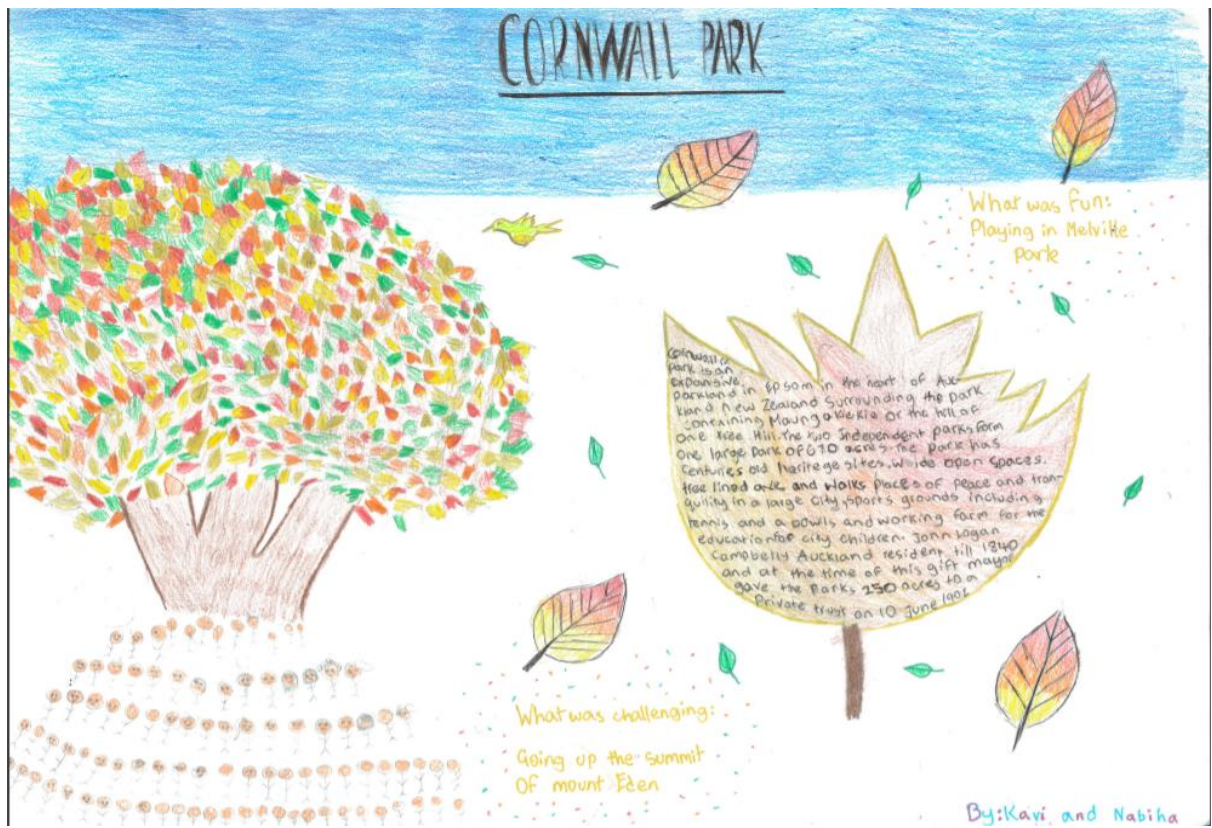 CORNWALL PARK
What was fun:
Playing in Melville
park
Cornwall
park is an
expansive
parkland in epsom in the heart of Auc-
kland New Zealand surrounding the park
containing Maungakiekie or the hill of
One tree Hill. The two independent parks form
One large Park of 670 acres. The park has
centuries old heritage sites, wide open spaces.
tree lined and walks places of peace and tran-
quility in a large city, sports grounds including
tennis and a bowls and working farm for the
education of city children. John Logan
Campbell Auckland resident till 1840
and at the time of this gift mayor
gave the parks 250 acres to a
Private trust on 10 June 1901
What was challenging:
Going up the summit
Of mount Eden
By: Kavi and Nabiha